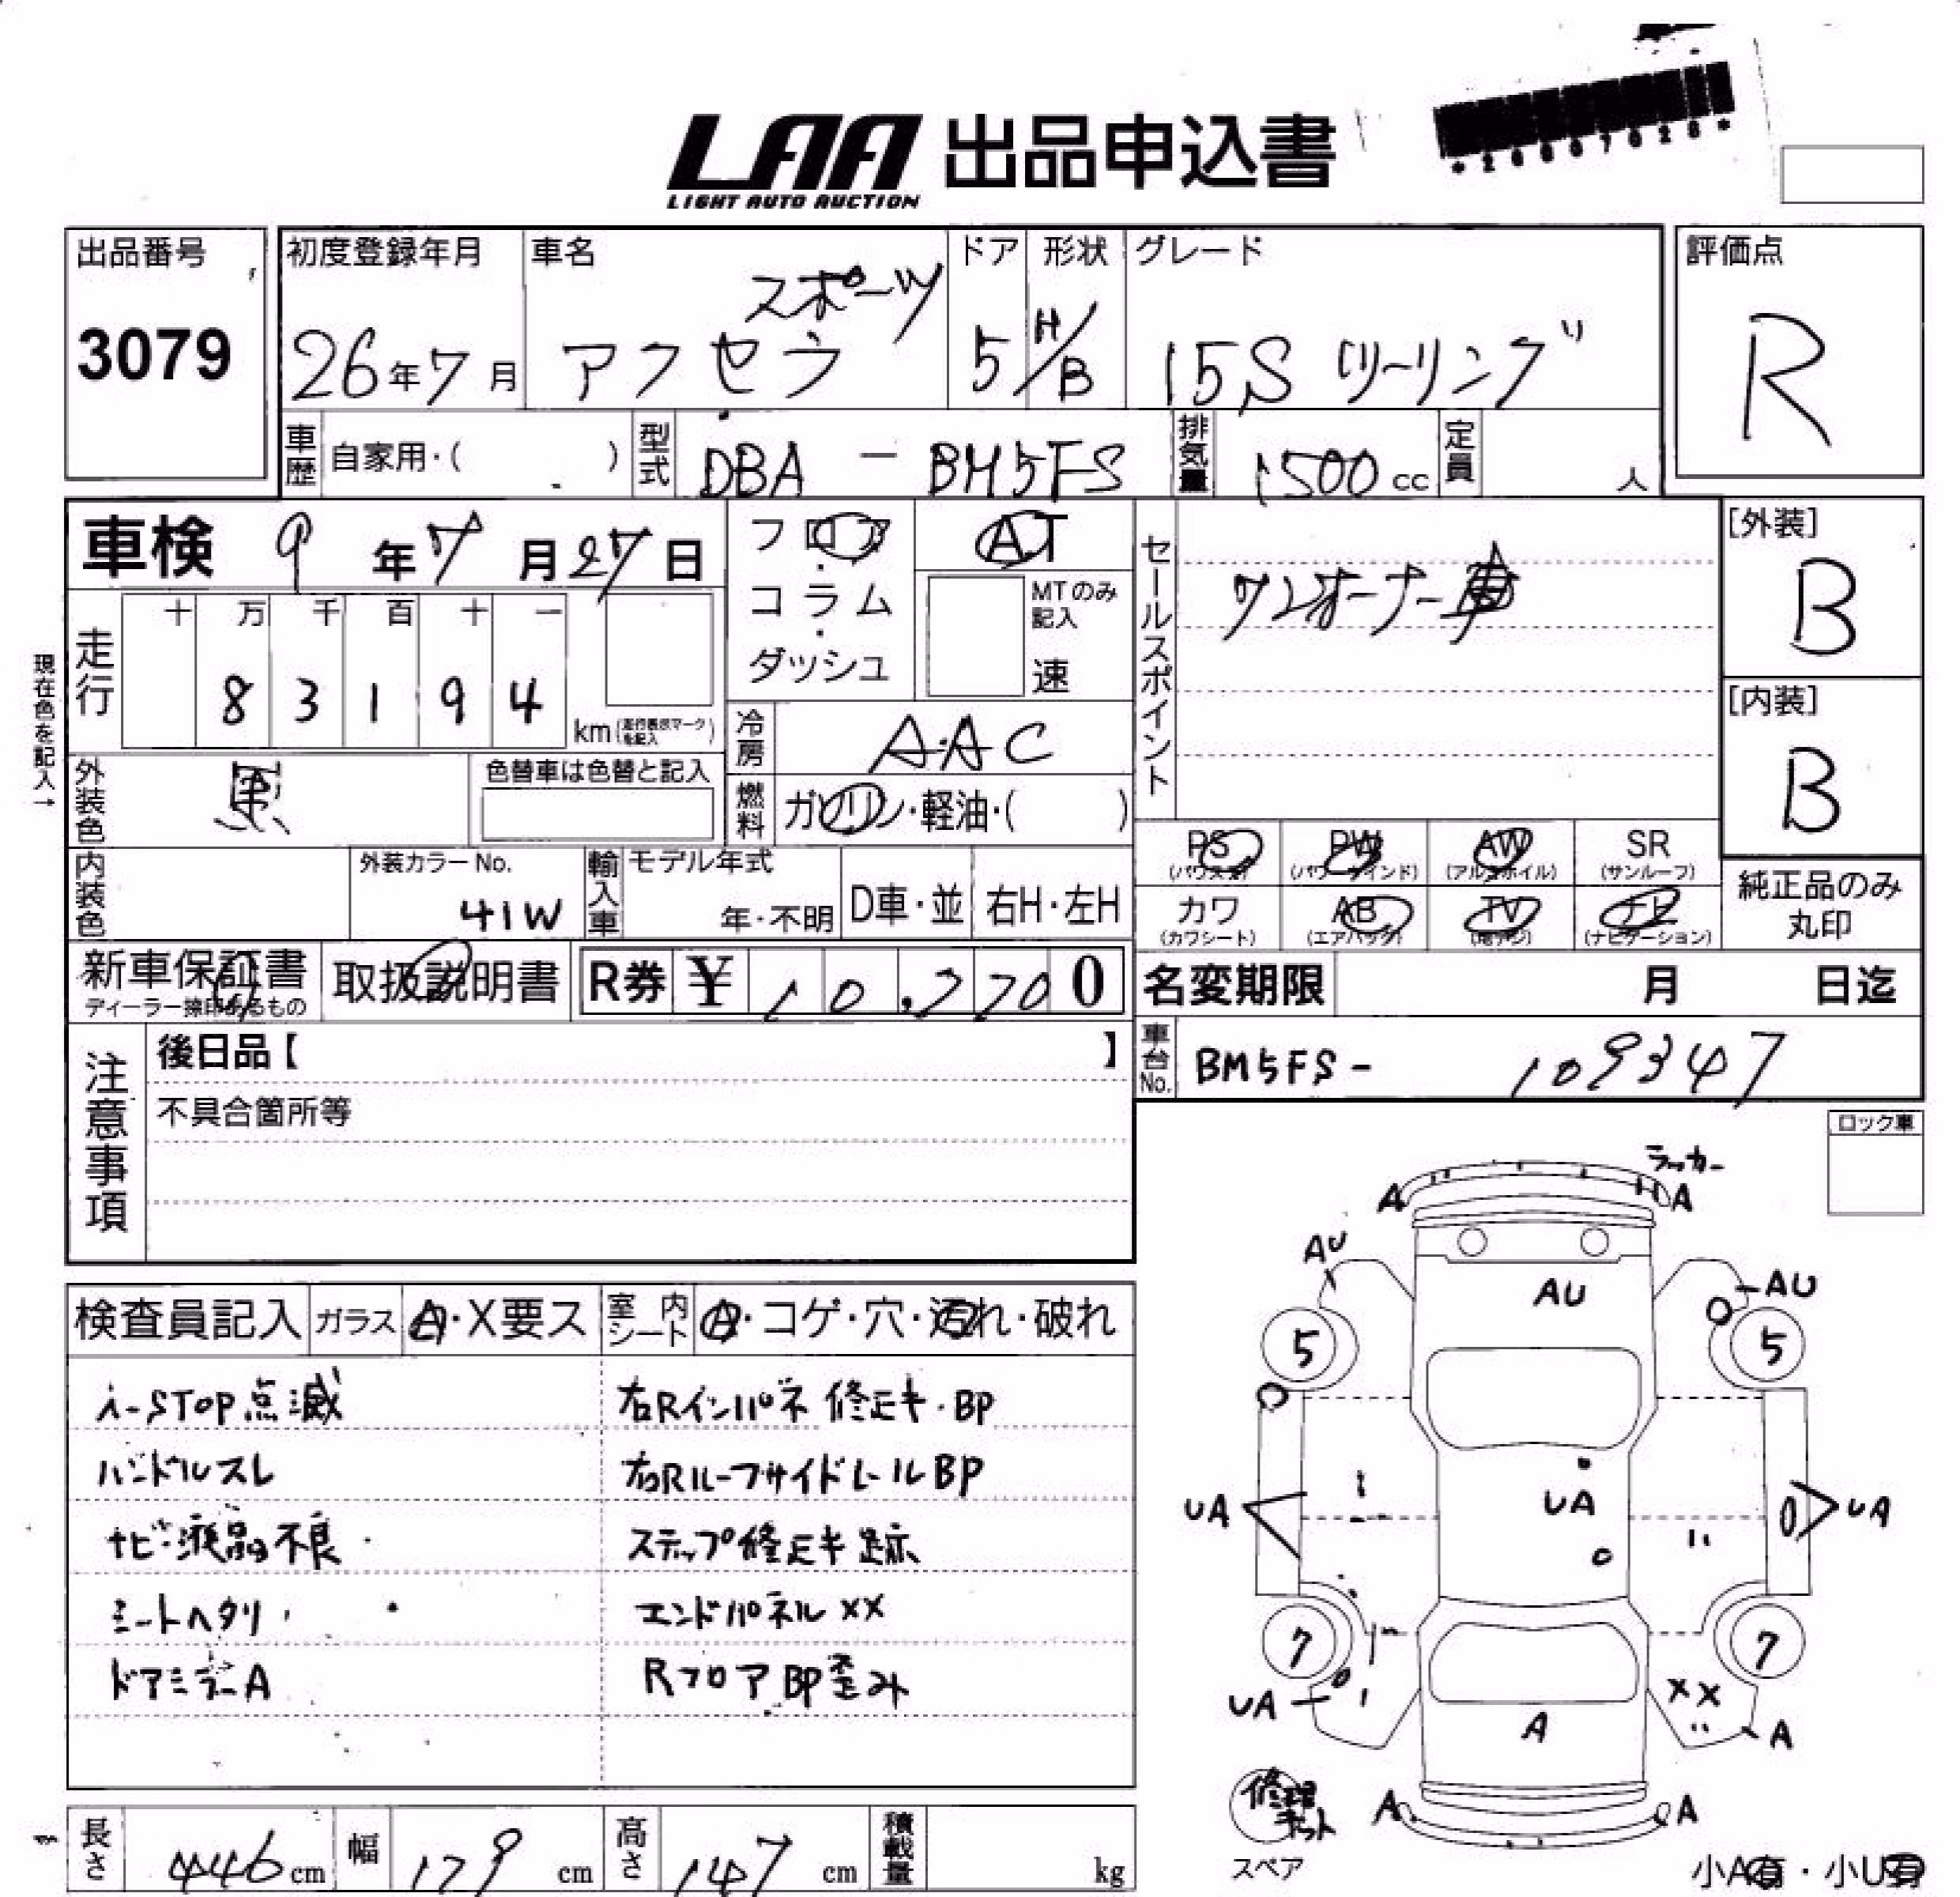 LAA 出品申込書
LIGHT AUTO AUCTION
*26007028*
出品番号
3079
初度登録年月
26年7月
車名
アクセラ スポーツ
ドア
5
形状
H/B
グレード
15S ツーリング
評価点
R
車歴 自家用・( )
型式 DBA - BM5FS
排気量 1500 cc
定員 人
車検 9年7月27日
フロア・コラム・ダッシュ
AT
MTのみ記入
速
セールスポイント
ワンオーナー車
[外装]
B
[内装]
B
現在色を記入→
走行
十 万 千 百 十 一
8 3 1 9 4
km (走行表示マークを記入)
冷房 AAC
燃料 ガソリン・軽油・( )
外装色 黒
色替車は色替と記入
内装色
外装カラーNo.
41W
輸入車
モデル年式
年・不明
D車・並
右H・左H
PS (パワステ)
PW (パワーウインド)
AW (アルミホイル)
SR (サンルーフ)
カワ (カワシート)
AB (エアバッグ)
TV (地デジ)
ナビ (ナビゲーション)
純正品のみ
丸印
新車保証書
ディーラー捺印あるもの
取扱説明書
R券 ¥ 10,770 0
名変期限 月 日迄
注意事項
後日品【 】
不具合箇所等
車台No. BM5FS- 109347
ロック車
検査員記入
ガラス A・X要ス
室内シート A・コゲ・穴・汚れ・破れ
i-STOP点滅
ハンドルスレ
ナビ液晶不良
シートヘタリ
ドアミラーA
右Rインパネ 修正キ・BP
右Rルーフサイドレール BP
ステップ修正キ跡
エンドパネル XX
Rフロア BP歪み
ラッカー
A A
AU AU AU
5 5
UA UA UA
7 7
UA XX
A A
A A
修理キット
スペア
小A有・小U有
長さ 446 cm
幅 179 cm
高さ 147 cm
積載量 kg